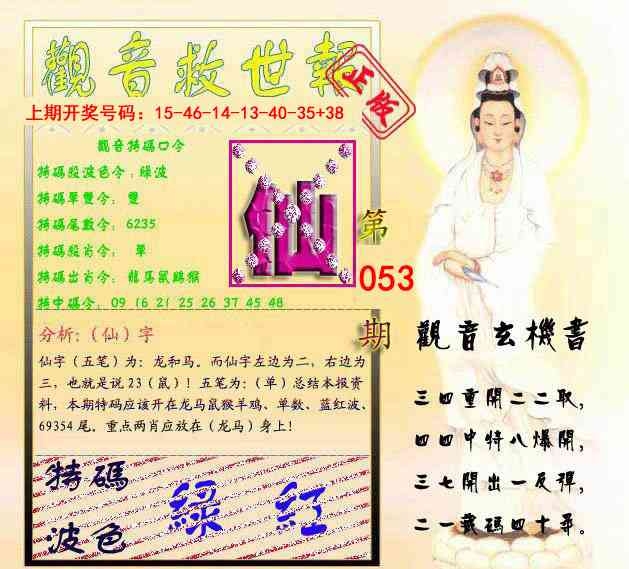 觀音救世報
正版
上期开奖号码：15-46-14-13-40-35+38
觀音特碼口令
特碼段波色令：绿波
特碼單雙令：雙
特碼尾數令：6235
特碼段肖令：單
特碼出肖令：龍马鼠鷄猴
特中碼令：09 16 21 25 26 37 45 48
仙
第
053
期
分析：（仙）字
仙字（五笔）为：龙和马。而仙字左边为二，右边为
三，也就是说 23（鼠）！五笔为：（单）总结本报资
料，本期特码应该开在龙马鼠猴羊鸡、单数、蓝红波、
69354 尾。重点两肖应放在（龙马）身上！
特碼
波色
綠 紅
觀音玄機書
三四重開二二取，
四四中特八爆開，
三七開出一反彈，
二一載碼四十尋。